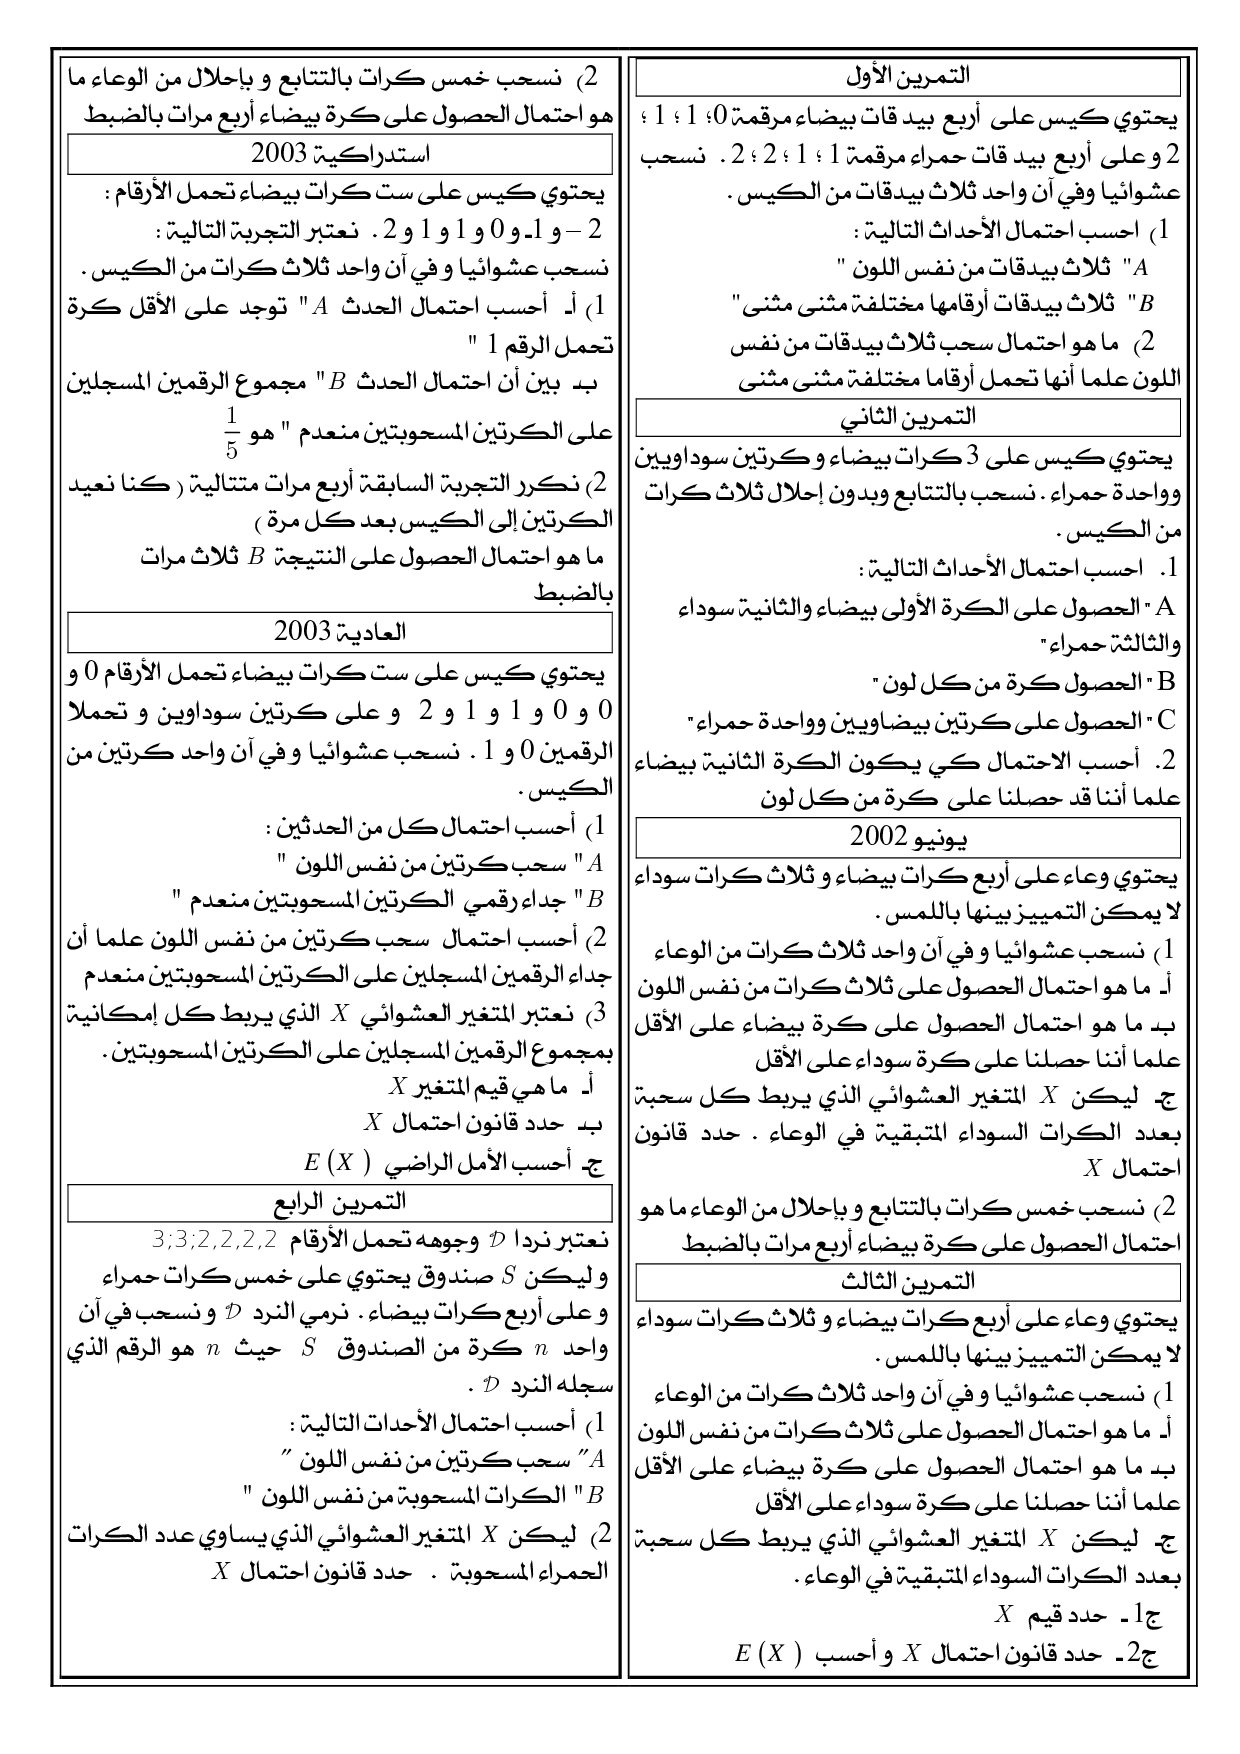 التمرين الأول
يحتوي كيس على أربع بيدقات بيضاء مرقمة 0؛ 1 ؛ 1 ؛
2 و على أربع بيدقات حمراء مرقمة 1 ؛ 1 ؛ 2 ؛ 2 . نسحب
عشوائيا وفي آن واحد ثلاث بيدقات من الكيس .
1) احسب احتمال الأحداث التالية :
A" ثلاث بيدقات من نفس اللون "
B" ثلاث بيدقات أرقامها مختلفة مثنى مثنى"
2) ما هو احتمال سحب ثلاث بيدقات من نفس
اللون علما أنها تحمل أرقاما مختلفة مثنى مثنى
التمرين الثاني
يحتوي كيس على 3 كرات بيضاء و كرتين سوداويين
وواحدة حمراء . نسحب بالتتابع وبدون إحلال ثلاث كرات
من الكيس .
1. احسب احتمال الأحداث التالية :
A " الحصول على الكرة الأولى بيضاء والثانية سوداء
والثالثة حمراء"
B " الحصول كرة من كل لون "
C " الحصول على كرتين بيضاويين وواحدة حمراء"
2. أحسب الاحتمال كي يكون الكرة الثانية بيضاء
علما أننا قد حصلنا على كرة من كل لون
يونيو 2002
يحتوي وعاء على أربع كرات بيضاء و ثلاث كرات سوداء
لا يمكن التمييز بينها باللمس .
1) نسحب عشوائيا و في آن واحد ثلاث كرات من الوعاء
أـ ما هو احتمال الحصول على ثلاث كرات من نفس اللون
بـ ما هو احتمال الحصول على كرة بيضاء على الأقل
علما أننا حصلنا على كرة سوداء على الأقل
جـ ليكن X المتغير العشوائي الذي يربط كل سحبة
بعدد الكرات السوداء المتبقية في الوعاء . حدد قانون
احتمال X
2) نسحب خمس كرات بالتتابع و بإحلال من الوعاء ما هو
احتمال الحصول على كرة بيضاء أربع مرات بالضبط
التمرين الثالث
يحتوي وعاء على أربع كرات بيضاء و ثلاث كرات سوداء
لا يمكن التمييز بينها باللمس .
1) نسحب عشوائيا و في آن واحد ثلاث كرات من الوعاء
أـ ما هو احتمال الحصول على ثلاث كرات من نفس اللون
بـ ما هو احتمال الحصول على كرة بيضاء على الأقل
علما أننا حصلنا على كرة سوداء على الأقل
جـ ليكن X المتغير العشوائي الذي يربط كل سحبة
بعدد الكرات السوداء المتبقية في الوعاء .
ج1 ـ حدد قيم X
ج2 ـ حدد قانون احتمال X و أحسب E (X )
2) نسحب خمس كرات بالتتابع و بإحلال من الوعاء ما
هو احتمال الحصول على كرة بيضاء أربع مرات بالضبط
استدراكية 2003
يحتوي كيس على ست كرات بيضاء تحمل الأرقام :
2 – و 1ـ و 0 و 1 و 1 و 2 . نعتبر التجربة التالية :
نسحب عشوائيا و في آن واحد ثلاث كرات من الكيس .
1) أـ أحسب احتمال الحدث A " توجد على الأقل كرة
تحمل الرقم 1 "
بـ بين أن احتمال الحدث B " مجموع الرقمين المسجلين
على الكرتين المسحوبتين منعدم " هو 1/5
2) نكرر التجربة السابقة أربع مرات متتالية ( كنا نعيد
الكرتين إلى الكيس بعد كل مرة )
ما هو احتمال الحصول على النتيجة B ثلاث مرات
بالضبط
العادية 2003
يحتوي كيس على ست كرات بيضاء تحمل الأرقام 0 و
0 و 0 و 1 و 1 و 2 و على كرتين سوداوين و تحملا
الرقمين 0 و 1 . نسحب عشوائيا و في آن واحد كرتين من
الكيس .
1) أحسب احتمال كل من الحدثين :
A " سحب كرتين من نفس اللون "
B " جداء رقمي الكرتين المسحوبتين منعدم "
2) أحسب احتمال سحب كرتين من نفس اللون علما أن
جداء الرقمين المسجلين على الكرتين المسحوبتين منعدم
3) نعتبر المتغير العشوائي X الذي يربط كل إمكانية
بمجموع الرقمين المسجلين على الكرتين المسحوبتين .
أـ ما هي قيم المتغير X
بـ حدد قانون احتمال X
جـ أحسب الأمل الراضي E (X )
التمرين الرابع
نعتبر نردا D وجوهه تحمل الأرقام 3;3;2,2,2,2
و ليكن S صندوق يحتوي على خمس كرات حمراء
و على أربع كرات بيضاء . نرمي النرد D و نسحب في آن
واحد n كرة من الصندوق S حيث n هو الرقم الذي
سجله النرد D .
1) أحسب احتمال الأحداث التالية :
A″ سحب كرتين من نفس اللون ″
B " الكرات المسحوبة من نفس اللون "
2) ليكن X المتغير العشوائي الذي يساوي عدد الكرات
الحمراء المسحوبة . حدد قانون احتمال X